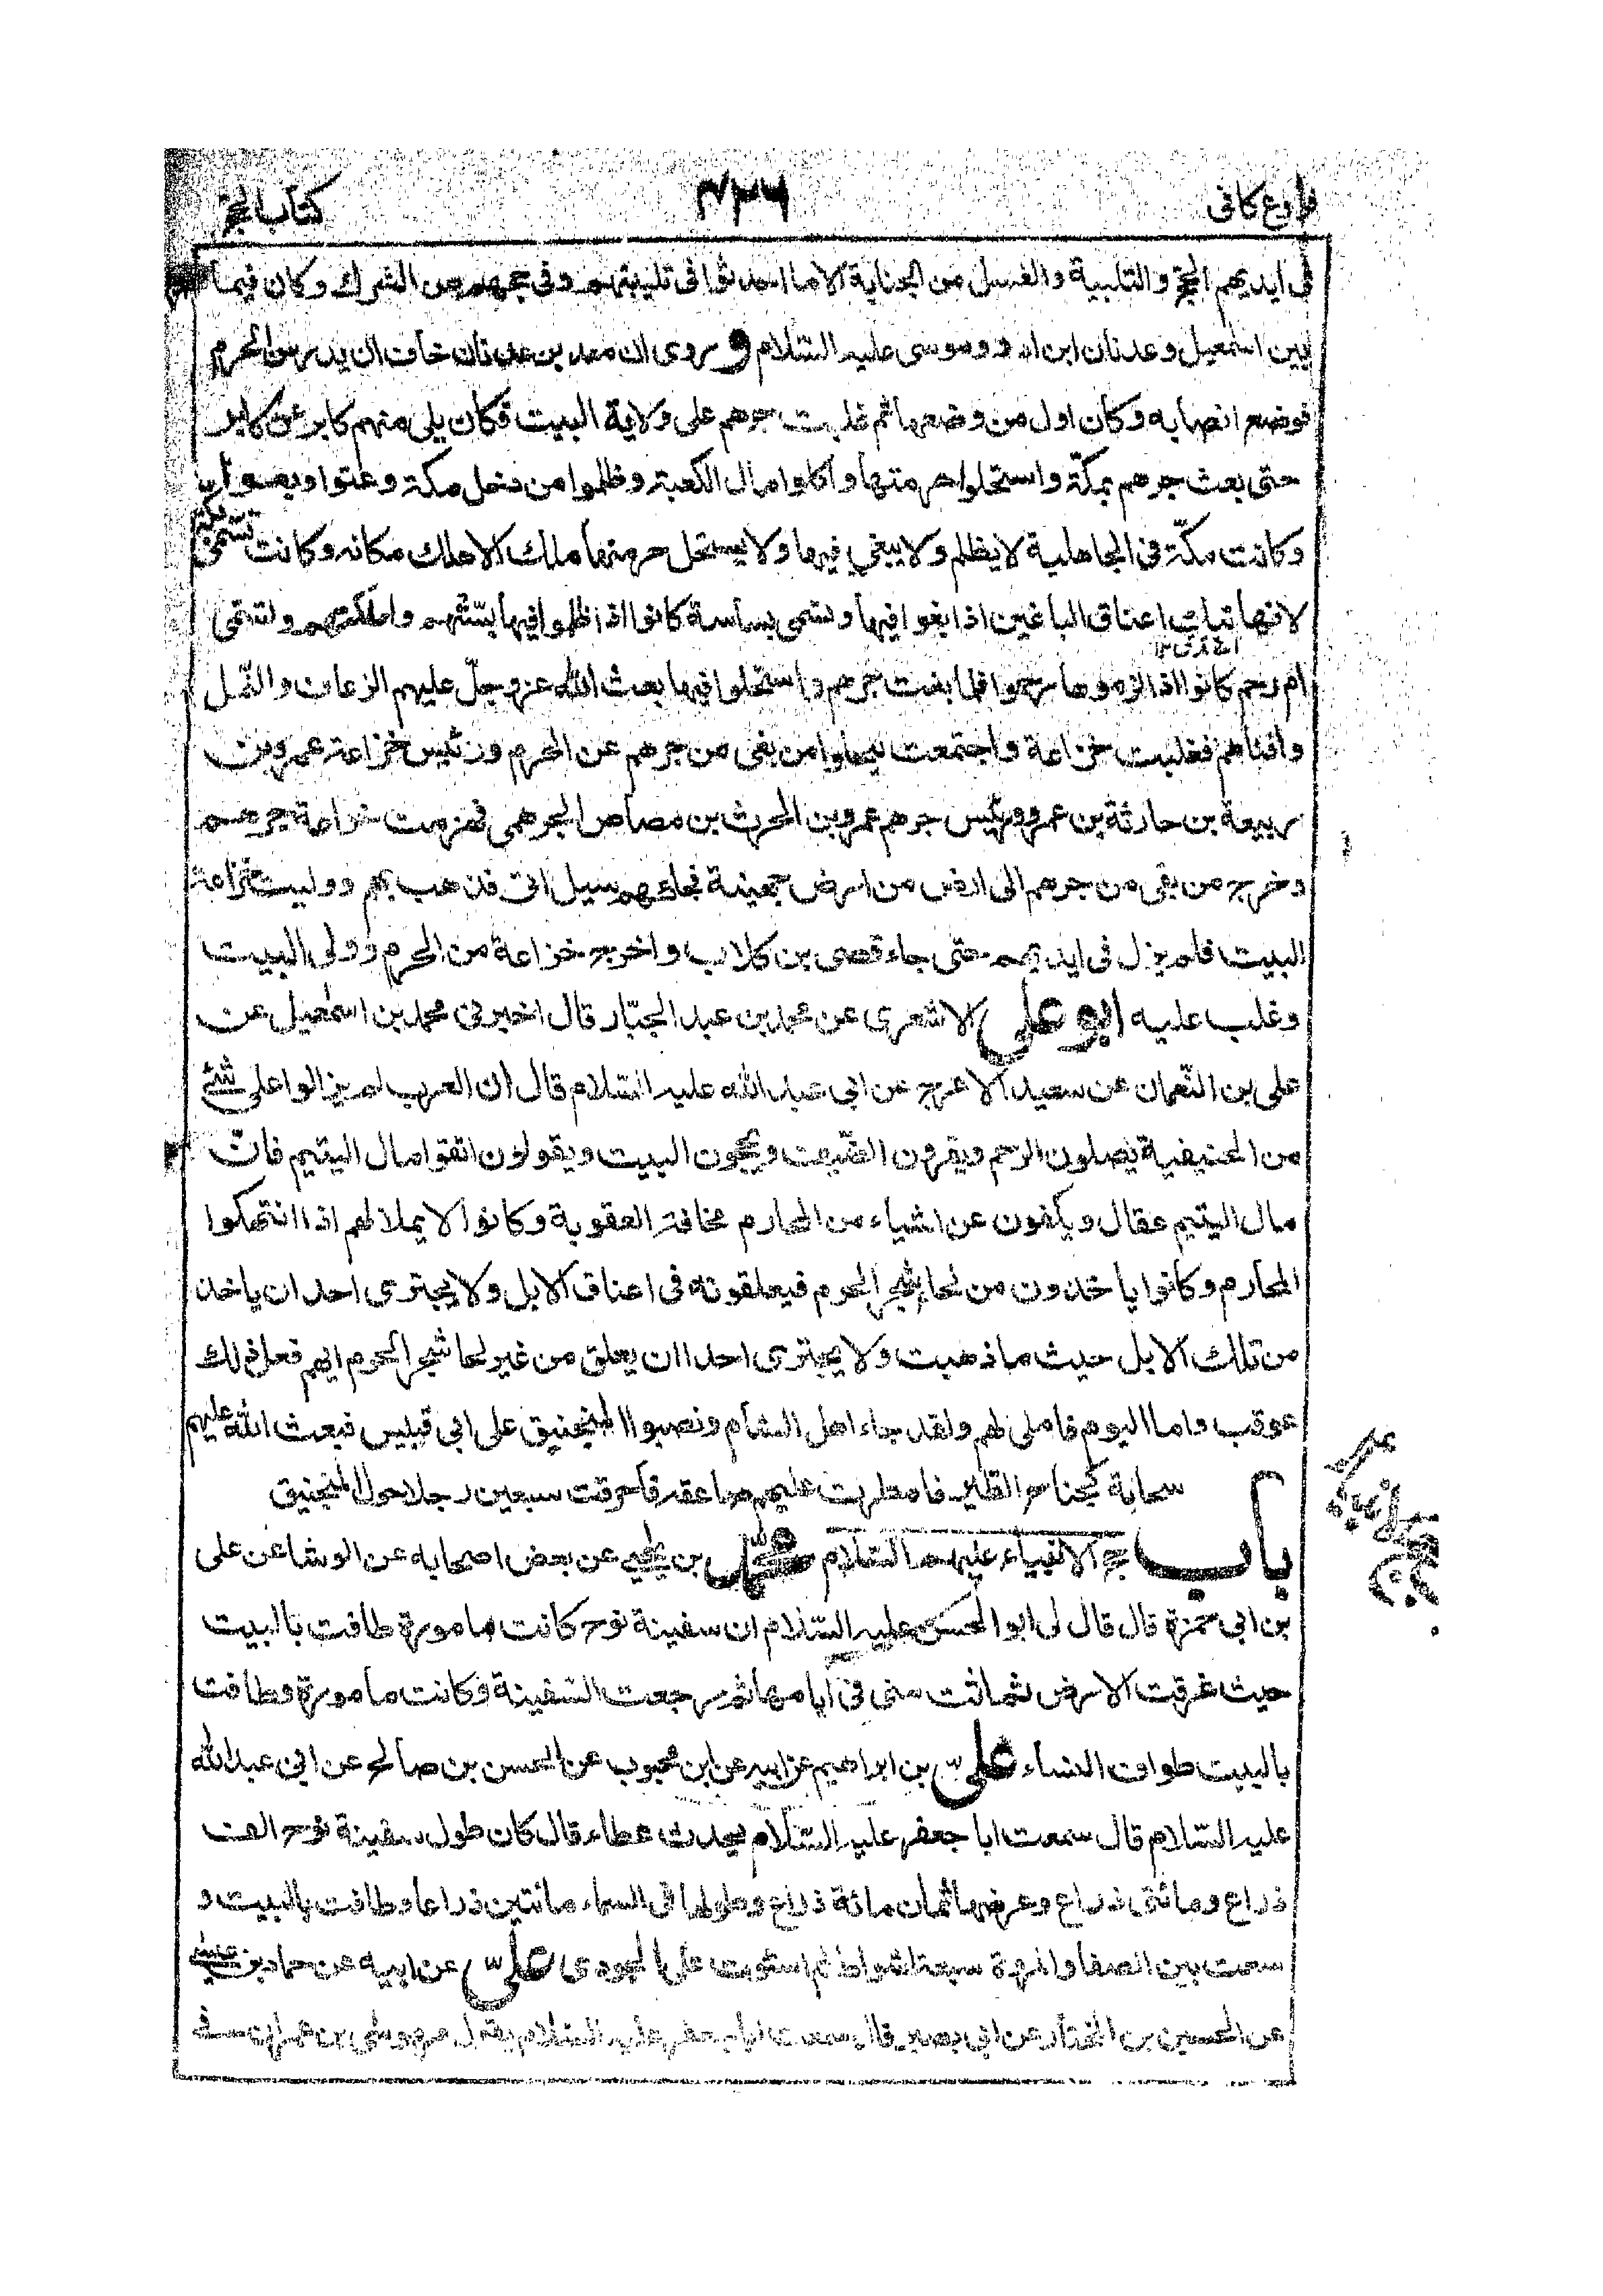 فروع کافی ۴۳۶ کتاب الحج
فی ایدیهم الحج و التلبیة والغسل من الجنابة الا ما احدثوا فی تلبیتهم وفی حجهم من الشرك وکان فیما
بین اسمعیل وعدنان ابن ادد وموسی علیه السّلام و روی ان معد بن عدنان خاف ان یدرس الحرم
فوضع انصابه وکان اول من وضعها ثم غلبت جرهم علی ولایة البیت فکان یلی منهم کابر عن کابر
حتی بغت جرهم بمکّة واستحلوا حرمتها واکلوا مال الکعبة وظلموا من دخل مکة وعتوا وبغوا
وکانت مکّة فی الجاهلیة لا یظلم ولا یبغی فیها ولا یستحل حرمتها ملك الا هلك مکانه وکانت تسمی بکة
لانها تبك اعناق الباغین اذا بغوا فیها وتسمی بساسة کانوا اذا ظلموا فیها بسّتهم واهلکتهم وتسمی
ام رحم کانوا اذا لزموها رحموا فلما بغت جرهم واستحلوا فیها بعث الله عز وجلّ علیهم الرعاف والنّمل
وافناهم فغلبت خزاعة واجتمعت لیجلوا من بقی من جرهم عن الحرم ورئیس خزاعة عمرو بن
ربیعة بن حارثة بن عمرو ورئیس جرهم عمرو بن الحرث بن مصاص الجرهمی فهزمت خزاعة جرهم
وخرج من بقی من جرهم الی ارض من ارض جهینة فجاءهم سیل اتی فذهب بهم وولیت خزاعة
البیت فلم یزل فی ایدیهم حتی جاء قصی بن کلاب واخرج خزاعة من الحرم وولی البیت
وغلب علیه ابو علی الاشعری عن محمد بن عبد الجبّار قال اخبرنی محمد بن اسمعیل عن
علی بن النّعمان عن سعید الاعرج عن ابی عبد الله علیه السّلام قال ان العرب لم یزالوا علی شئ
من الحنیفیة یصلون الرحم ویقرون الضّیف ویحجون البیت ویقولون اتقوا مال الیتیم فانّ
مال الیتیم عقال ویکفون عن اشیاء من المحارم مخافة العقوبة وکانوا لا یملا لهم اذا انتهکوا
المحارم وکانوا یاخذون من لحا شجر الحرم فیعلقونه فی اعناق الابل ولا یجتری احد ان یاخذ
من تلك الابل حیث ما ذهبت ولا یجتری احدا ان یعلق من غیر لحا شجر الحرم ایهم فعل ذلك
عوقب واما الیوم فاملی لهم ولقد جاء اهل الشام ونصبوا المنجنیق علی ابی قبیس فبعث الله علیهم
سحابة کجناح الطیر فامطرت علیهم صاعقة فاحرقت سبعین رجلا حول المنجنیق
باب حج الانبیاء علیهم السّلام محمّد بن یحیی عن بعض اصحابه عن الوشا عن علی
بن ابی حمزة قال قال لی ابو الحسن علیه السّلام ان سفینة نوح کانت مامورة طافت بالبیت
حیث غرقت الارض ثم اتت منی فی ایامها ثم رجعت السّفینة وکانت مامورة وطافت
بالبیت طواف النساء علیّ بن ابراهیم عن ابیه عن ابن محبوب عن الحسن بن صالح عن ابی عبد الله
علیه السّلام قال سمعت ابا جعفر علیه السّلام یحدث عطاء قال کان طول سفینة نوح الف
ذراع ومائتی ذراع وعرضها ثمان مائة ذراع وطولها فی السماء مائتین ذراعا وطافت بالبیت و
سعت بین الصفا والمروة سبعة اشواط ثم استوت علی الجودی علیّ عن ابیه عن حماد بن عیسی
عن الحسین بن المختار عن ابی بصیر قال سمعت ابا جعفر علیه السّلام یقول مر موسی بن عمران فی